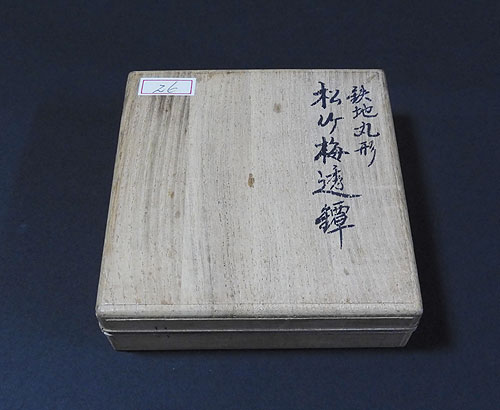 鉄地丸形
松竹梅透鐔
26